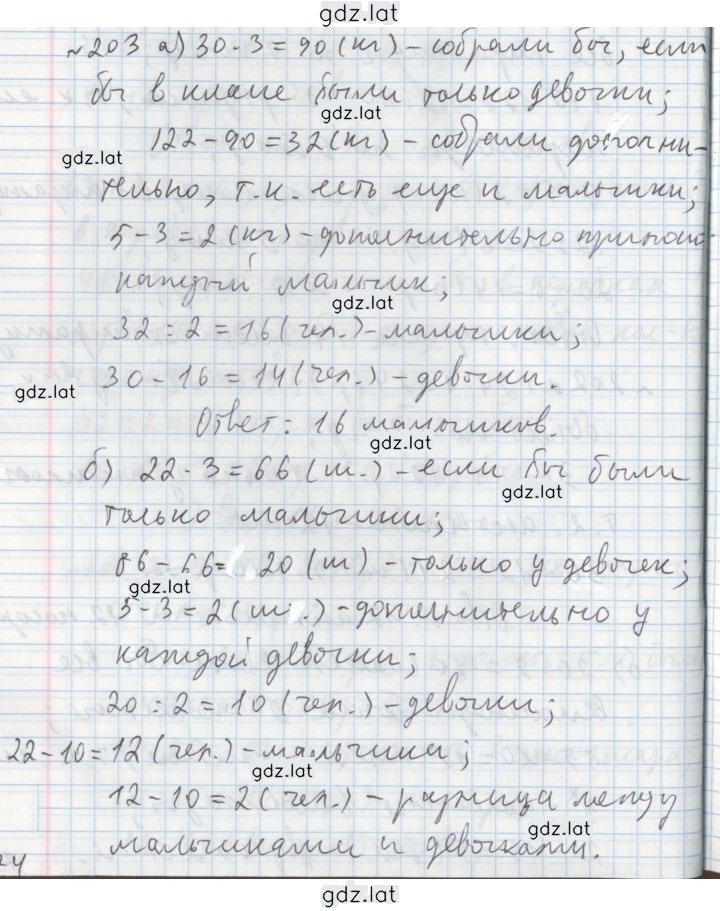 gdz.lat
№ 203 а) 30 · 3 = 90 (кг) – собрали бы, если
бы в класе были только девочки;
gdz.lat
122 – 90 = 32 (кг) – собрали дополни-
gdz.lat
тельно, т.к. есть еще и мальчики;
5 – 3 = 2 (кг) – дополнительно
каждый мальчик;
gdz.lat
32 : 2 = 16 (чел.) – мальчики;
30 – 16 = 14 (чел.) – девочки.
gdz.lat
Ответ: 16 мальчиков.
gdz.lat
б) 22 · 3 = 66 (ш.) – если бы были
gdz.lat
только мальчики;
86 – 66 = 20 (ш) – только у девочек;
gdz.lat
5 – 3 = 2 (ш.) – дополнительно у
каждой девочки;
20 : 2 = 10 (чел.) – девочки;
22 – 10 = 12 (чел.) – мальчики;
gdz.lat
12 – 10 = 2 (чел.) – разница между
gdz.lat
мальчиками и девочками.
24
gdz.lat